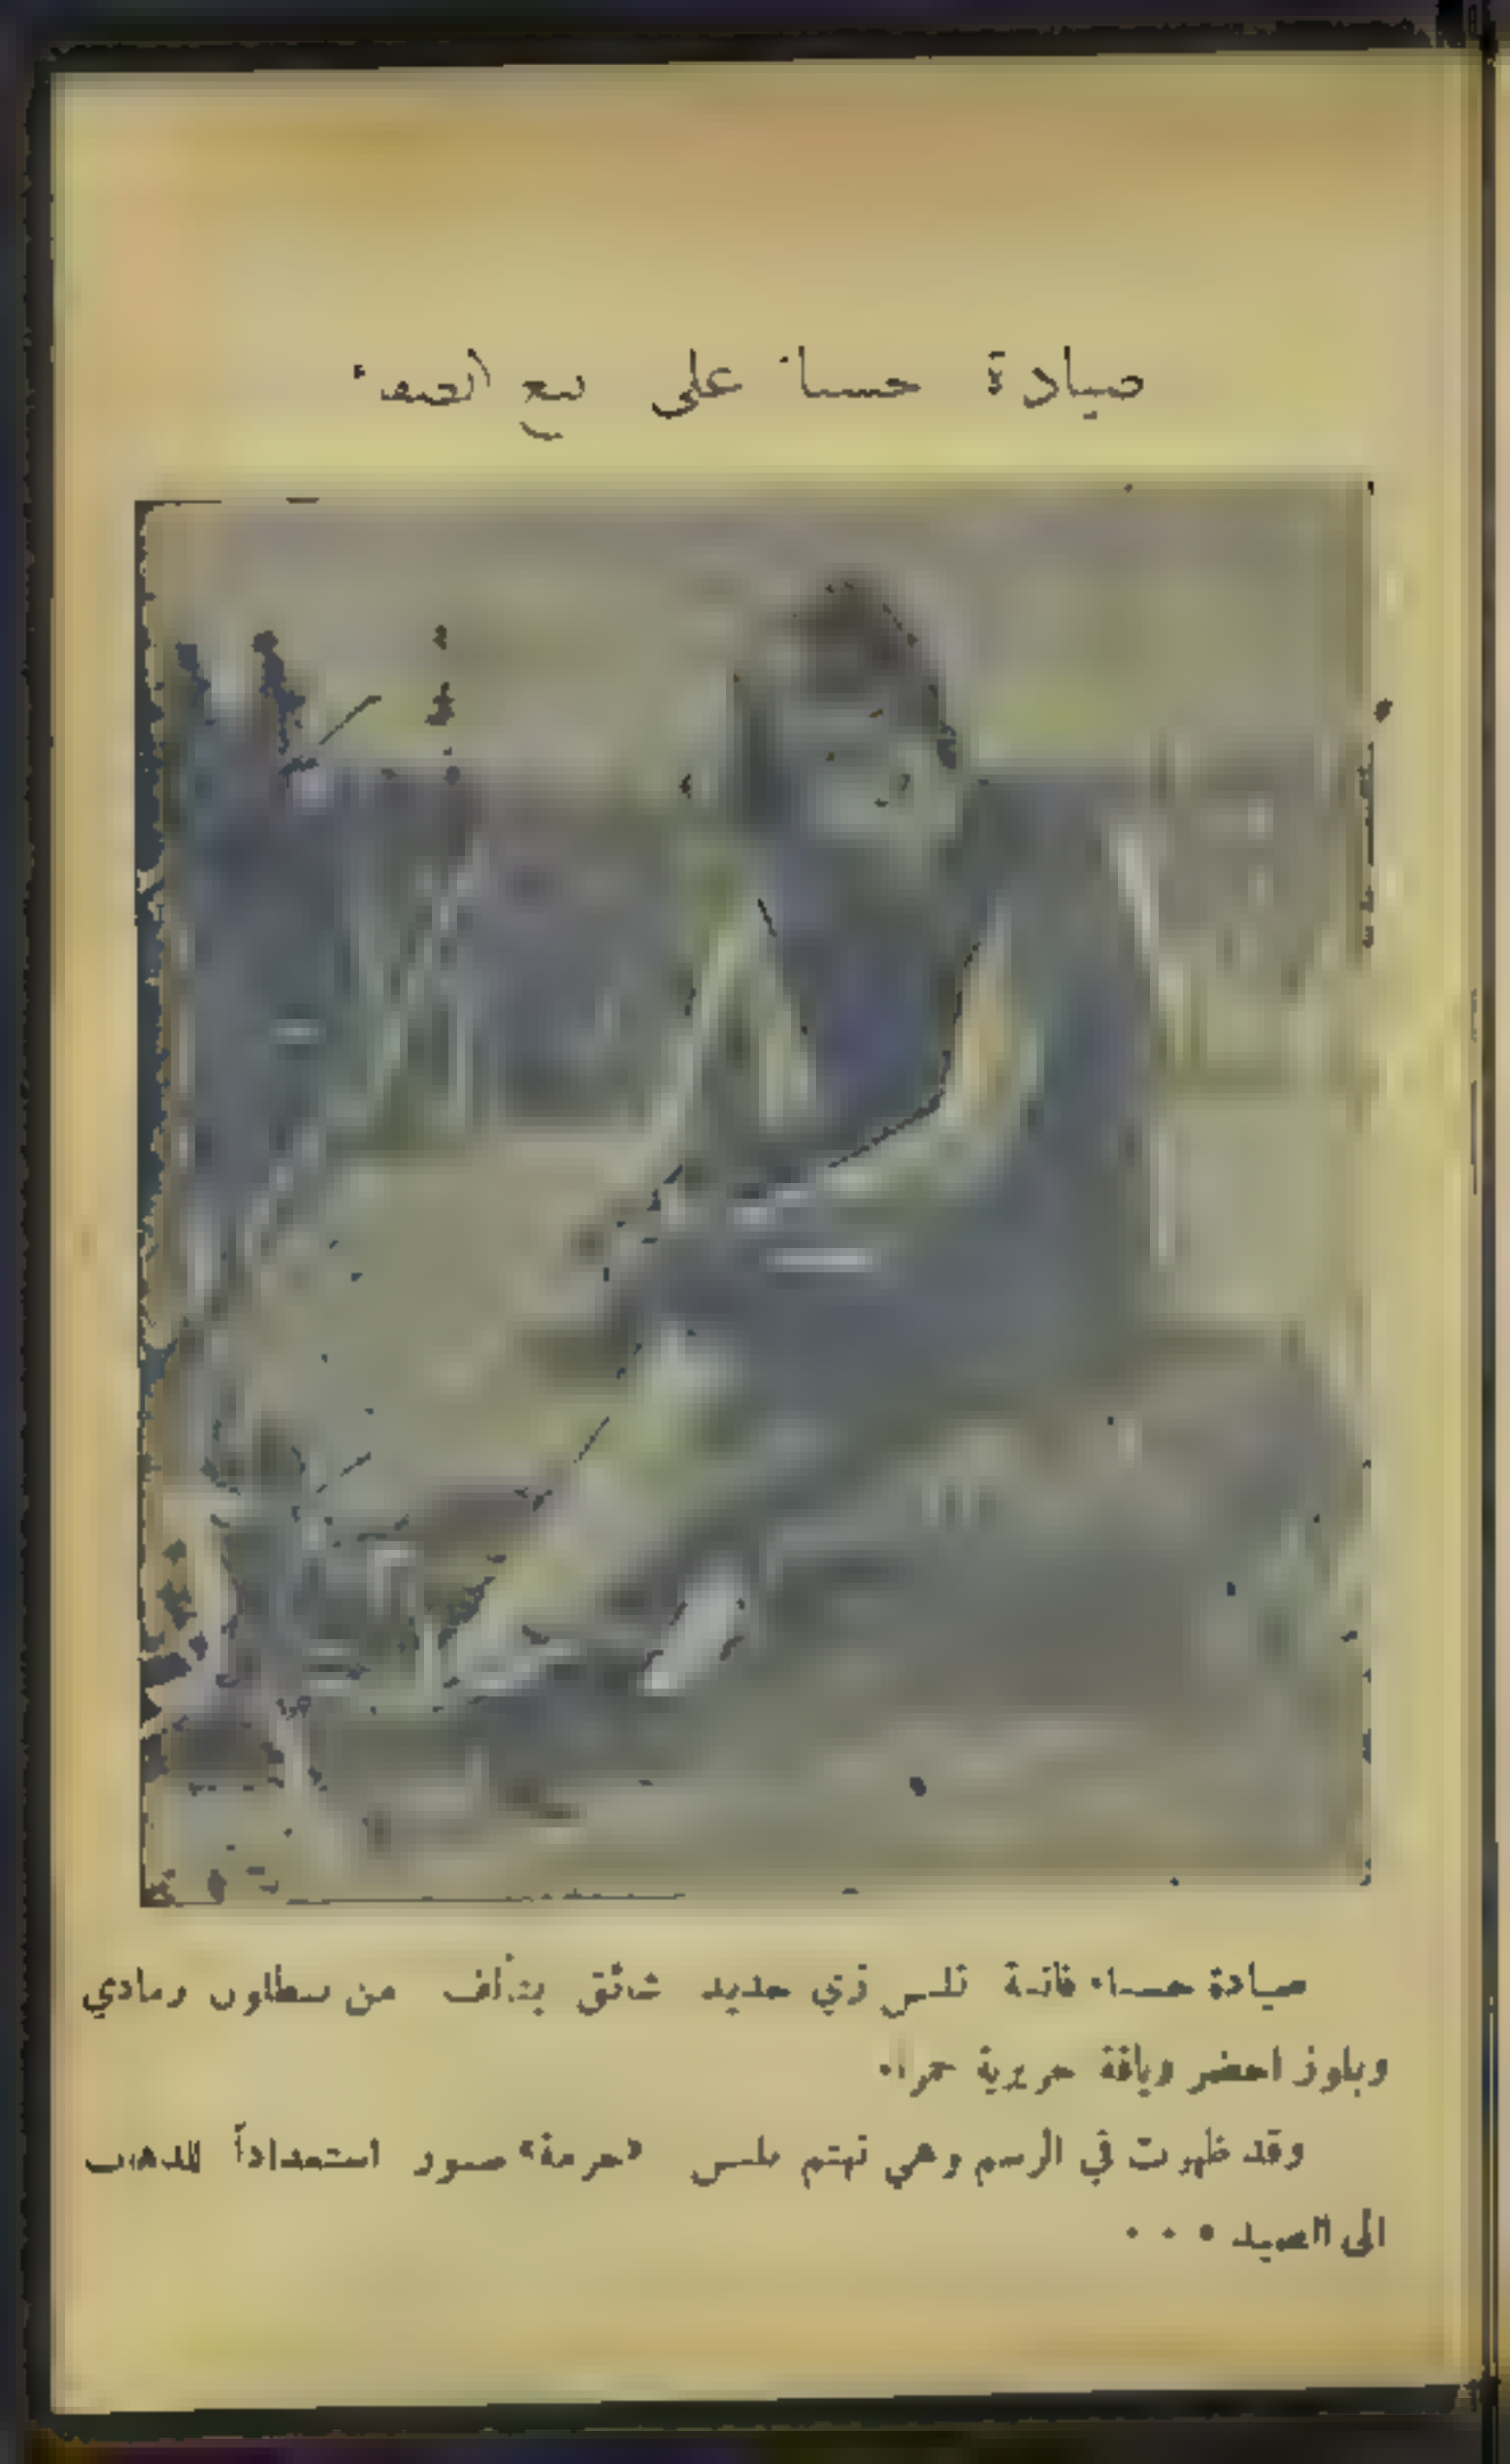 صيادة حسناء على نبع الصفاء
صيادة حسناء فاتنة تلبس زي جديد شائق يتألف من بنطلون رمادي
وبلوز اخضر وياقة حريرية حمراء
وقد ظهرت في الرسم وهي تهتم بلبس «جزمة» استعداداً للذهاب
الى الصيد ...